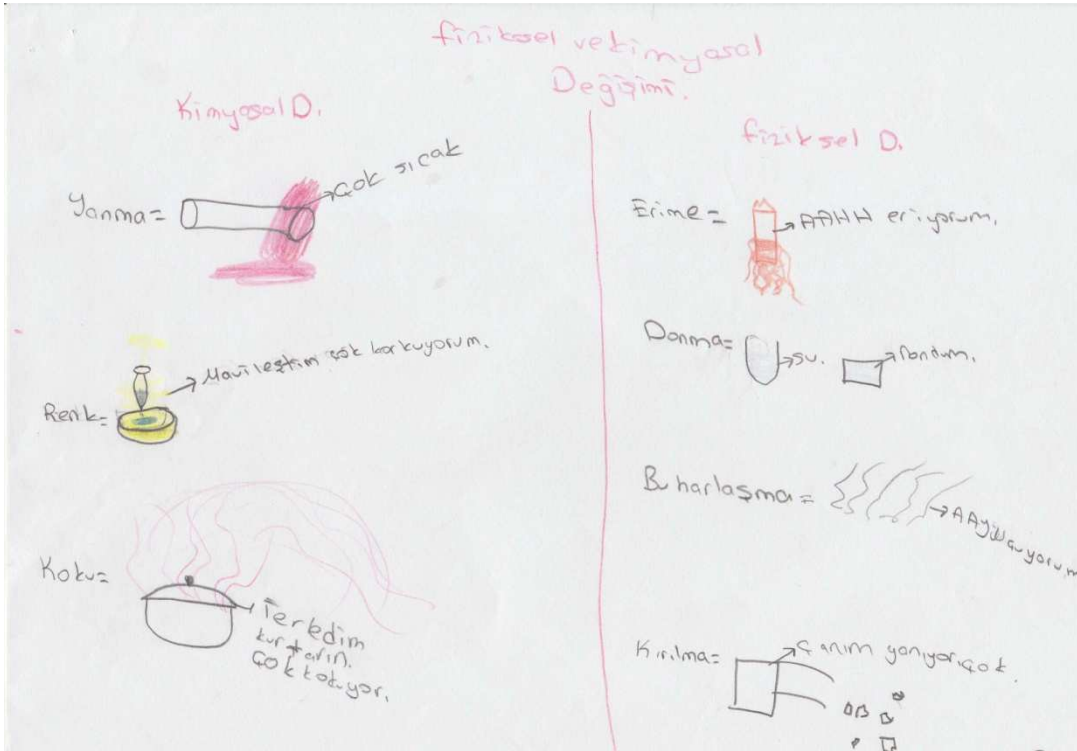 fiziksel ve kimyasal
Değişimi.
Kimyasal D.
Yanma=
çok sıcak
Renk=
Mavileştim çok korkuyorum.
Koku=
Terledim
kurtarın.
çok kokuyor.
fiziksel D.
Erime=
AAHH eriyorum.
Donma=
su.
Dondum.
Buharlaşma=
Kırılma=
Canım yanıyor çok.